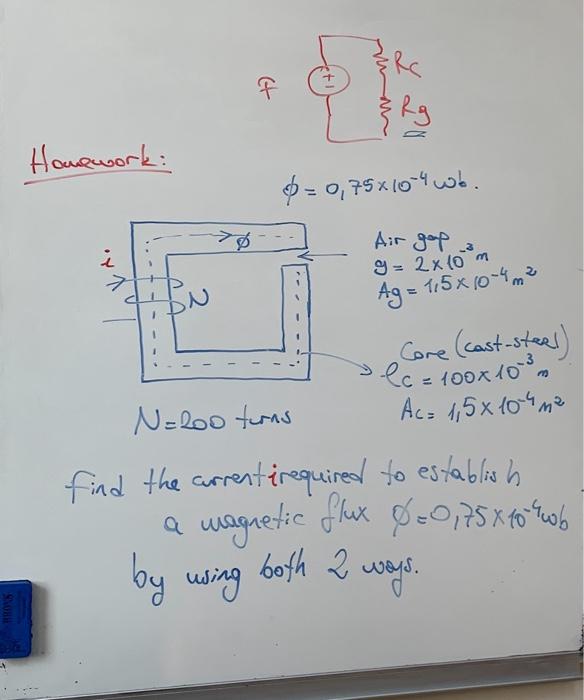 Rc
F
Rg
Homework:
ϕ = 0,75×10⁻⁴ wb.
ϕ
Air gap
i
g = 2×10⁻³ m
Ag = 1,5×10⁻⁴ m²
N
Core (cast-steel)
lc = 100×10⁻³ m
Ac = 1,5×10⁻⁴ m²
N=200 turns
find the current i required to establish
a magnetic flux ϕ=0,75×10⁻⁴ wb
by using both 2 ways.